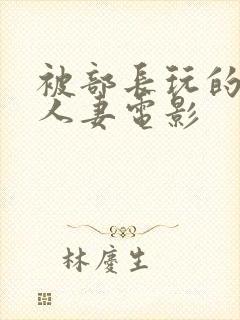 被部長玩的
人妻電影
林慶生